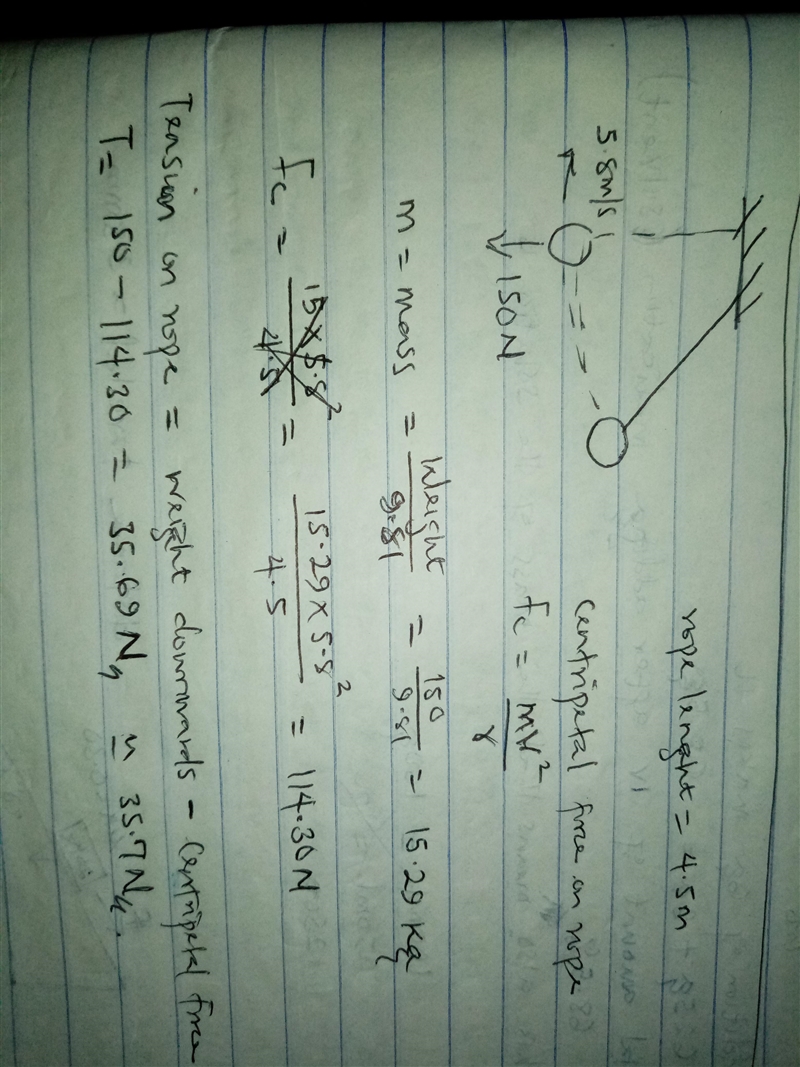 rope lenght = 4.5m
5.8m/s
150N
Centripetal force on rope
Fc = mv²/r
m = mass = Weight/9.81 = 150/9.81 = 15.29 Kg
Fc = 15×5.8²/4.5 = 15.29×5.8²/4.5 = 114.30N
Tension on rope = weight downwards - Centripetal force
T = 150 - 114.30 = 35.69N, ≃ 35.7N.